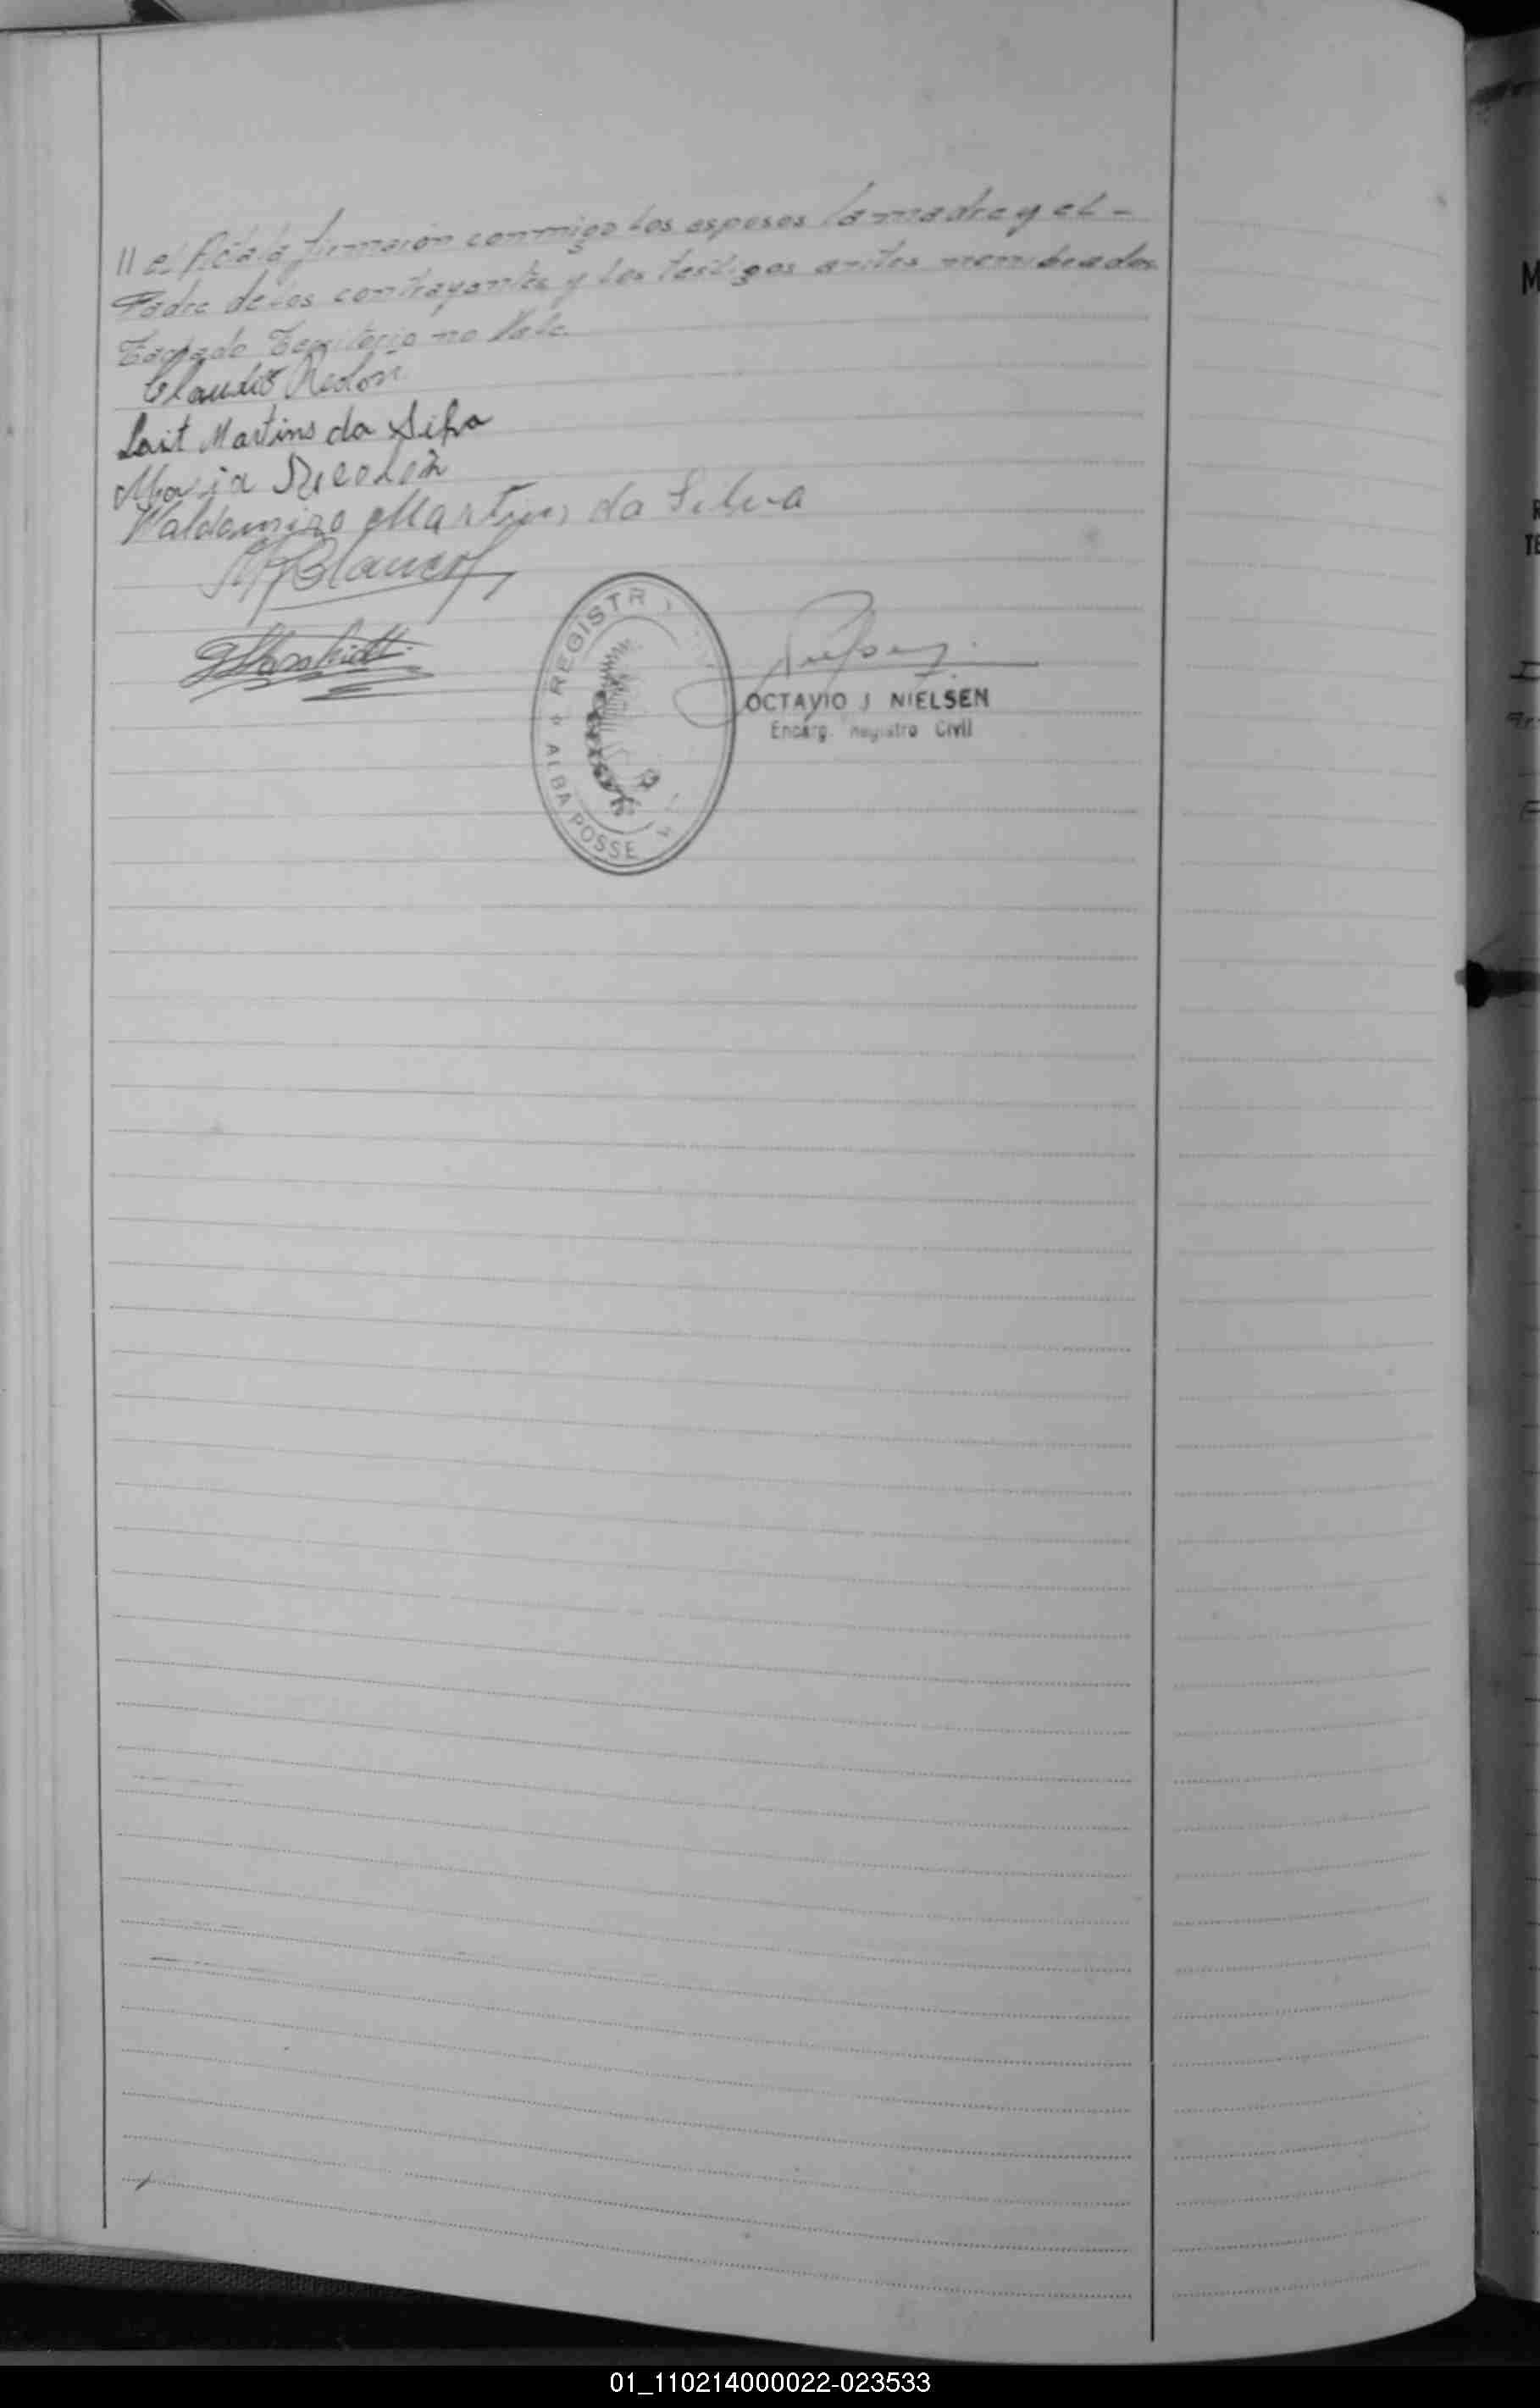 // el Acta la firmaron conmigo los esposos la madre y el -
Padre de los contrayentes y los testigos antes nombrados
Tachado Territorio no Vale.
Claudio Redon
Lait Martins da Silva
Maria
Waldomiro Martins da Silva
Blanco
REGISTR
ALBA POSSE
OCTAVIO J NIELSEN
Encarg. Registro Civil
01_110214000022-023533